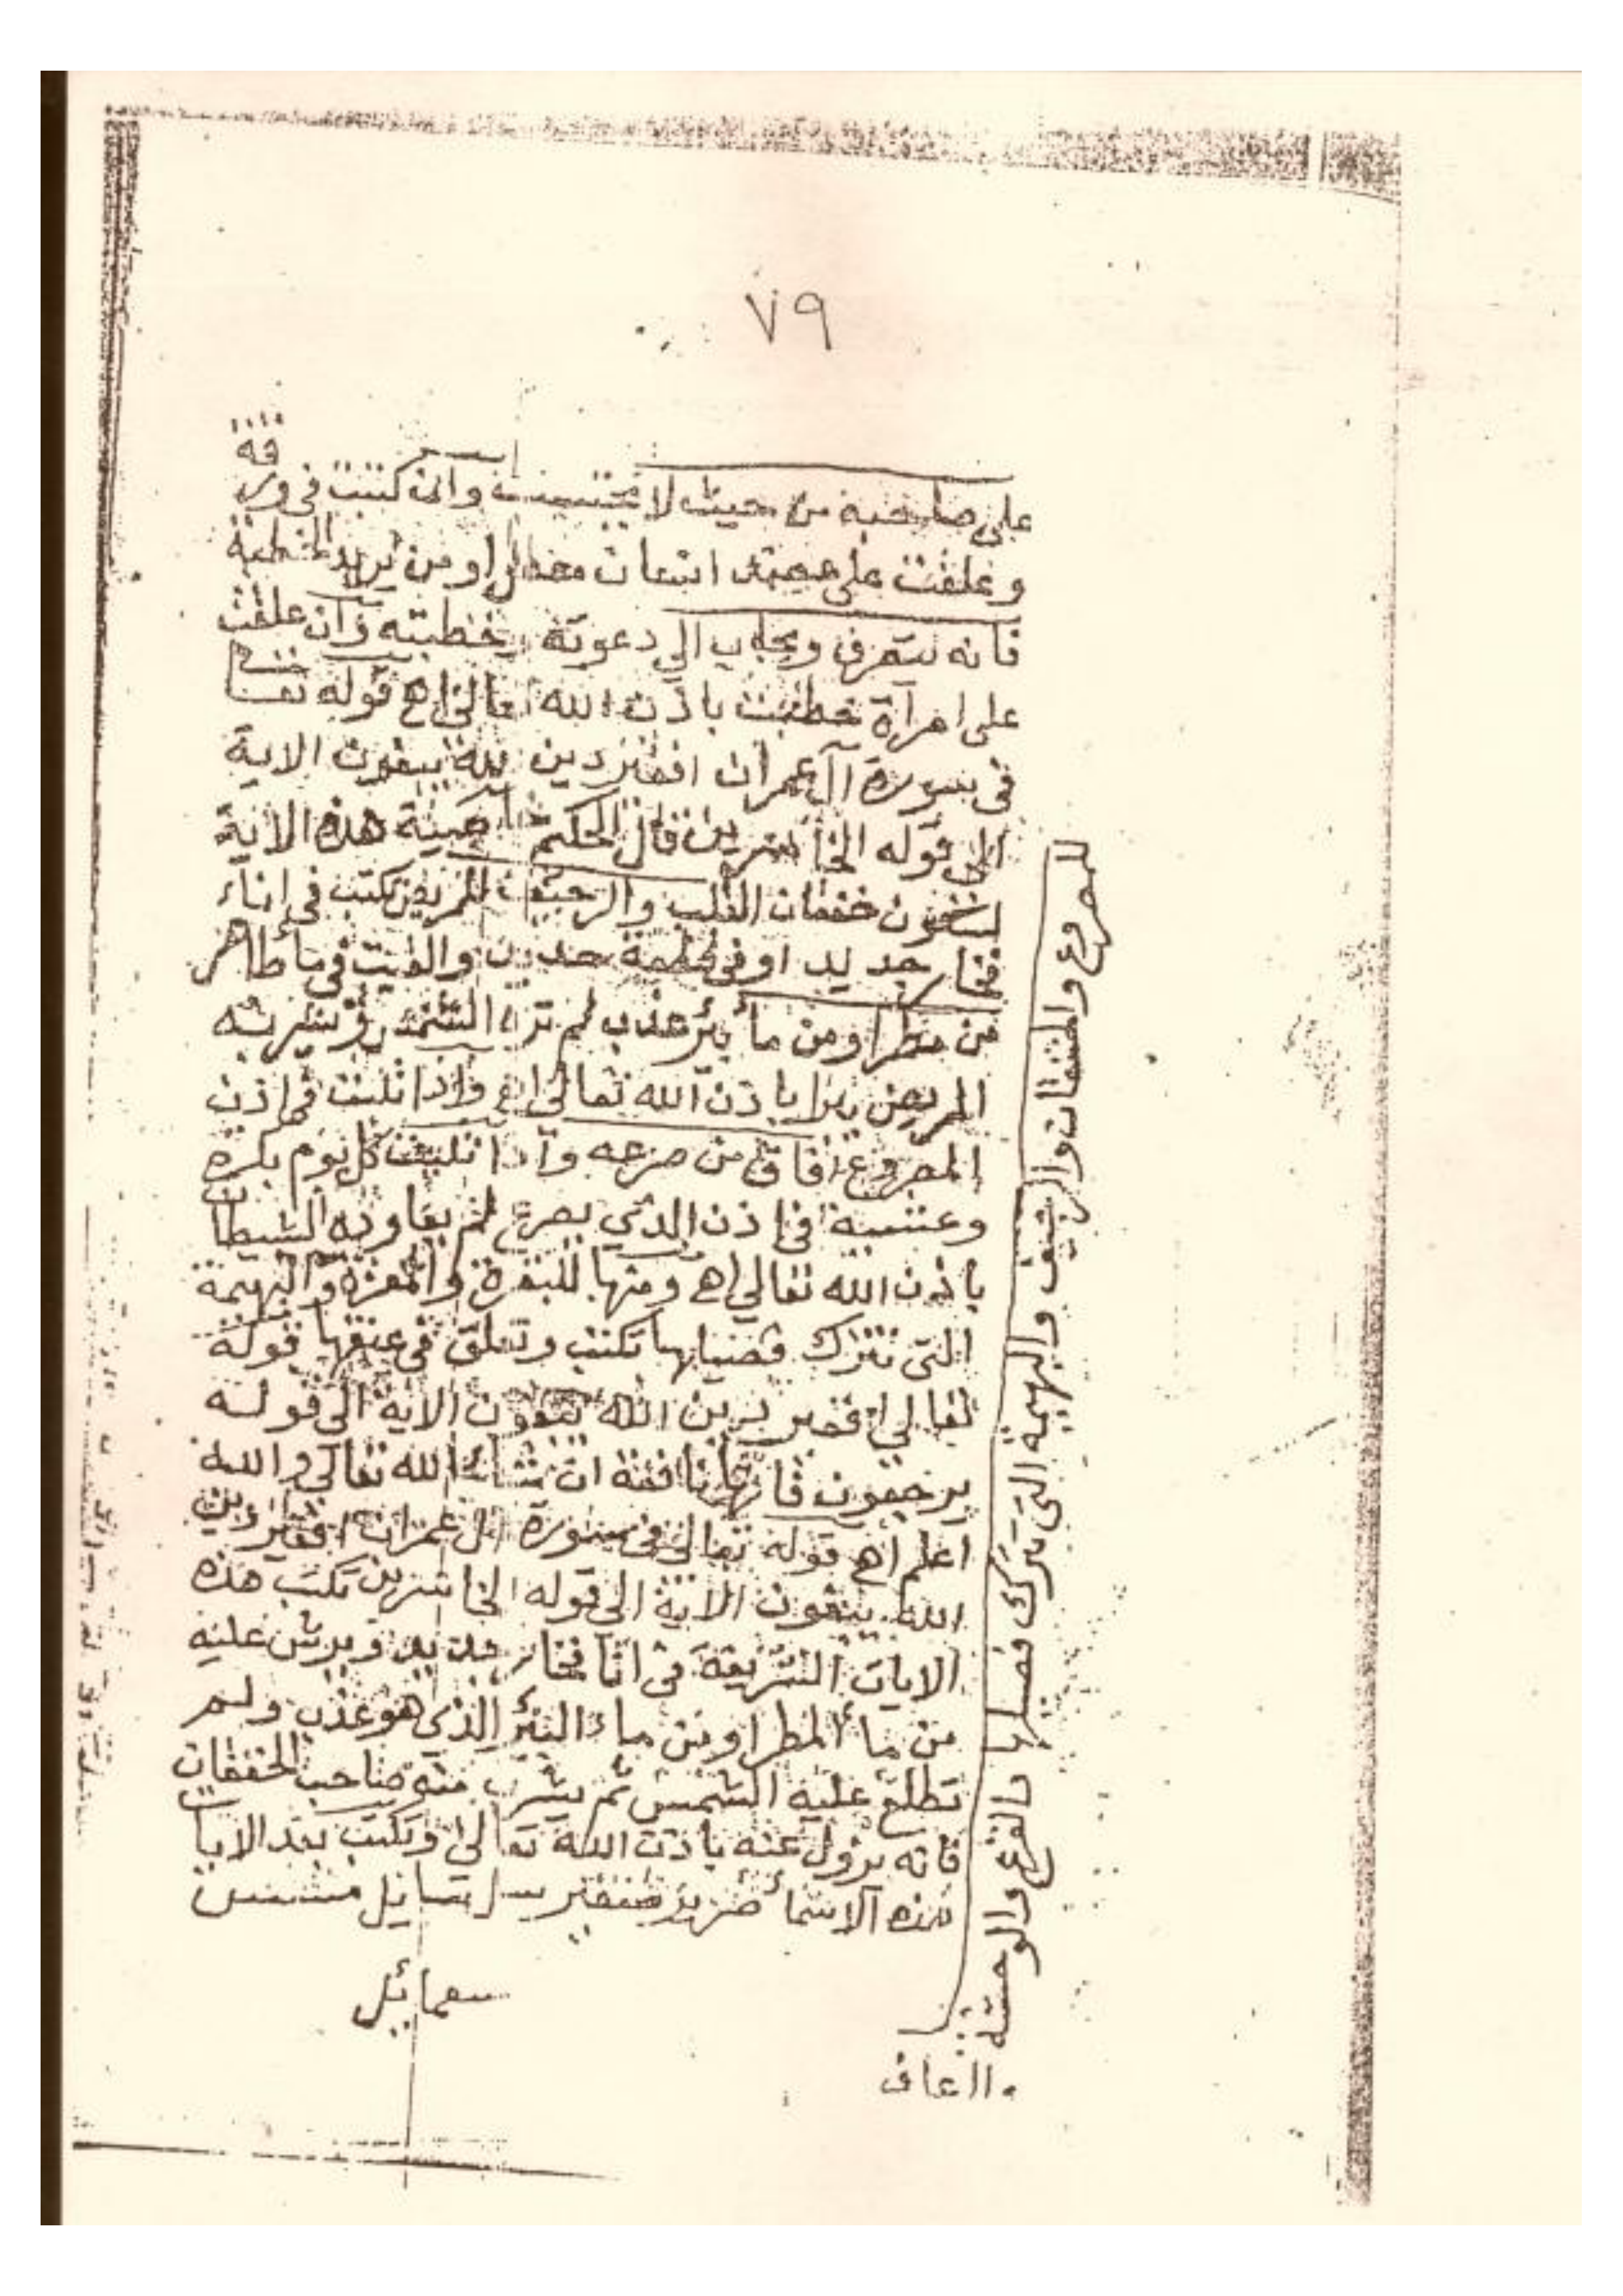 ٧٩
على صاحبه من حيث لا يحتسب وان كتبت فى ورقة
وعلقت على عضد انسان معطل او من يريد الخطبة
فانه يتصرف ويجاب الي دعوته وخطبته وان علقت
على امرأة خطبت باذن الله تعالى اهـ قوله تعا
فى سورة آل عمران افغير دين الله يبغون الاية
الى قوله الخاسرين قال الحكيم خاصية هذه الاية
لسكون خفقان القلب والرجيف للمريض تكتب فى إناء
فخار جديد او فى والقيت فى ماء طاهر
من مطر او من ماء بئر عذب لم تره الشمس وشربه
المريض برا باذن الله تعالى اهـ واذا تليت فى اذن
المصروع افاق من صرعه واذا تليت كل يوم بكرة
وعشية فى اذن الذي يصرع لم يعاوده الشيطان
باذن الله تعالي اهـ ومنها للبقرة والمعزة والبهيمة
التى تترك فصيلها تكتب وتعلق فى عنقها قوله
تعالي افغير دين الله يبغون الاية الى قوله
يرجعون فانها نافعة ان شاء الله تعالى والله
اعلم اهـ قوله تعالى فى سورة ال عمران افغير دين
الله يبغون الاية الى قوله الخاسرين تكتب هذه
الايات الشريفة فى انا فخار جديد ويرش عليه
من ماء المطر او من ماء البئر الذي هو عذب ولم
تطلع عليه الشمس ثم يشرب منه صاحب الخفقان
فانه يزول عنه باذن الله تعالى وتكتب بعد الايات
هذه الاسماء
سعمائيل
للمصروع والخفقان والرجيف والبهيمة التى تترك فصيلها والفزع والوحشة